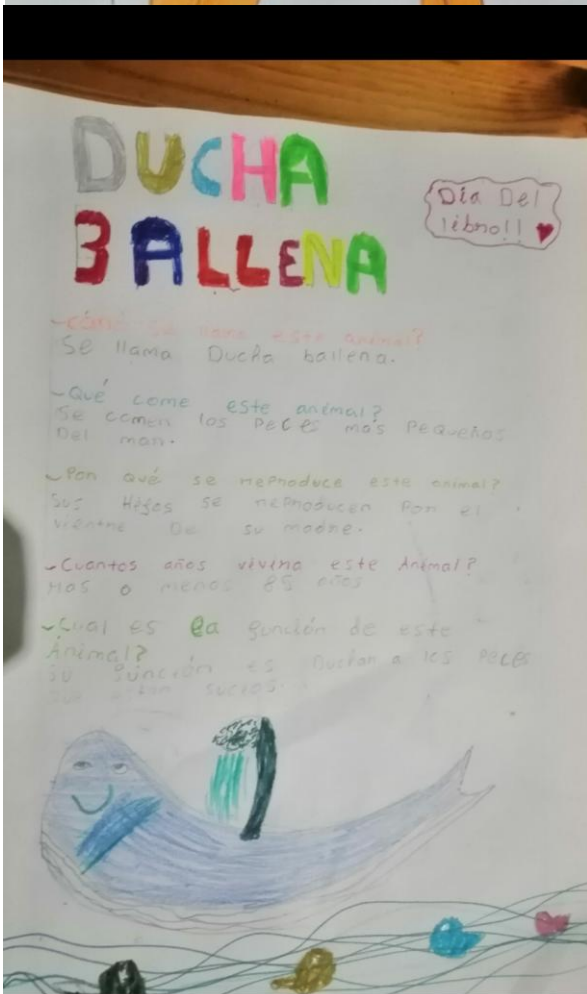 DUCHA
BALLENA
Día Del
libro!!
-cómo se llama este animal?
Se llama Ducha ballena.
-Qué come este animal?
Se comen los peces más pequeños
Del mar.
-Por qué se reproduce este animal?
Sus Hijos se reproducen por el
vientre De su madre.
-Cuantos años vivira este Animal?
Mas o menos 85 años
-Cual es la función de este
Animal?
su función es Duchar a los peces
sucios.